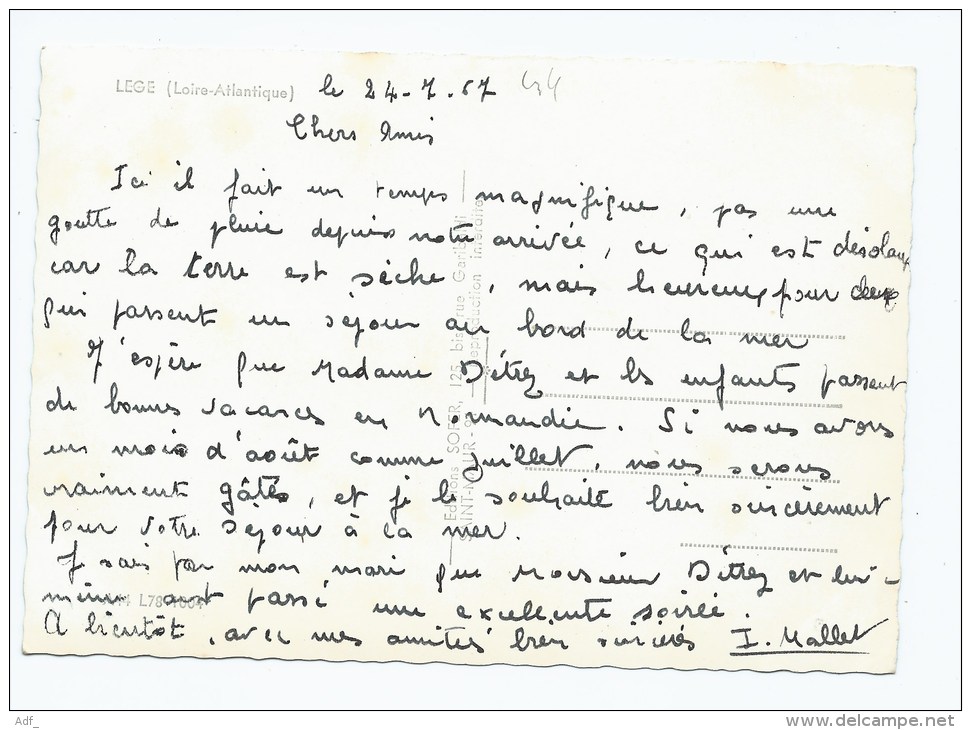 LEGE (Loire-Atlantique) le 24-7-67 44
Chers Amis
Ici il fait un temps magnifique, pas une
goutte de pluie depuis notre arrivée, ce qui est désolant
car la terre est sèche, mais heureux pour ceux
qui passent un séjour au bord de la mer
J'espère que Madame Détrez et les enfants passent
de bonnes vacances en Normandie. Si nous avons
un mois d'août comme juillet, nous serons
vraiment gâtés, et je le souhaite bien sincèrement
pour votre séjour à la mer.
Je sais par mon mari que Monsieur Détrez et lui-
même ont passé une excellente soirée.
A bientôt, avec mes amitiés bien sincères I. Mallet
Editions SOFER, 125 bis, rue Garibaldi
SAINT-MAUR - Reproduction interdite
Adf_
www.delcampe.net